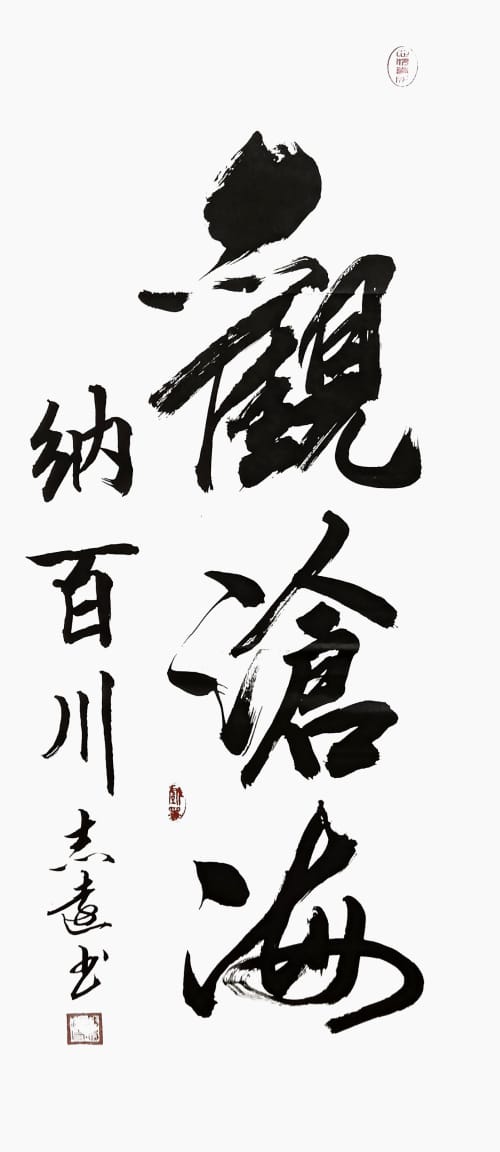 觀滄海
納百川
志遠书